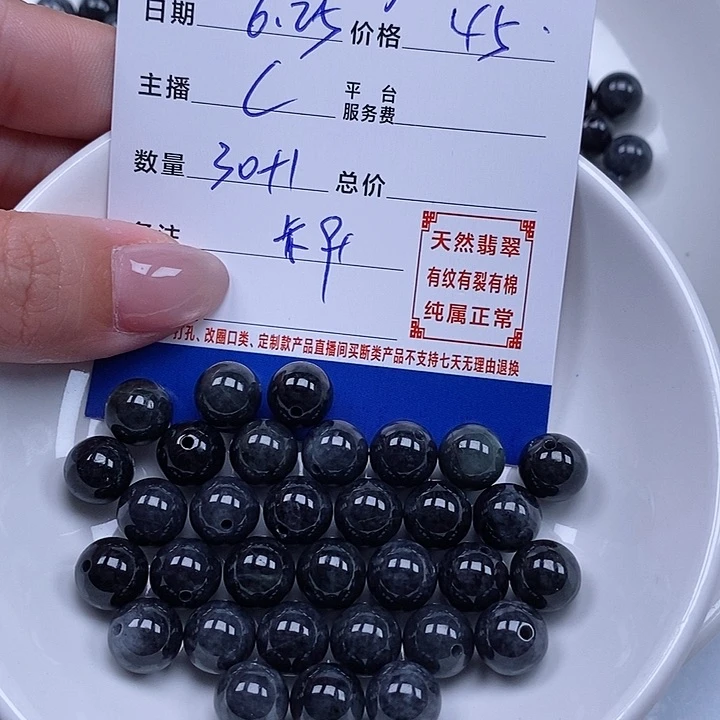 日期 6.25 价格 45.
主播 C 平台服务费
数量 30+1 总价
备注
天然翡翠
有纹有裂有棉
纯属正常
打孔、改圈口类、定制款产品直播间买断类产品不支持七天无理由退换